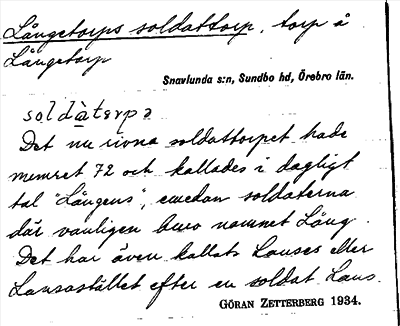 Långetorps soldattorp, torp å
Långetorp
Snavlunda s:n, Sundbo hd, Örebro län.
soldàtərpə
Det nu rivna soldattorpet hade
numret 72 och kallades i dagligt
tal "Långens", emedan soldaterna
där vanligen buro namnet Lång.
Det har även kallats Lanses eller
Lansastället efter en soldat Lans.
GÖRAN ZETTERBERG 1934.